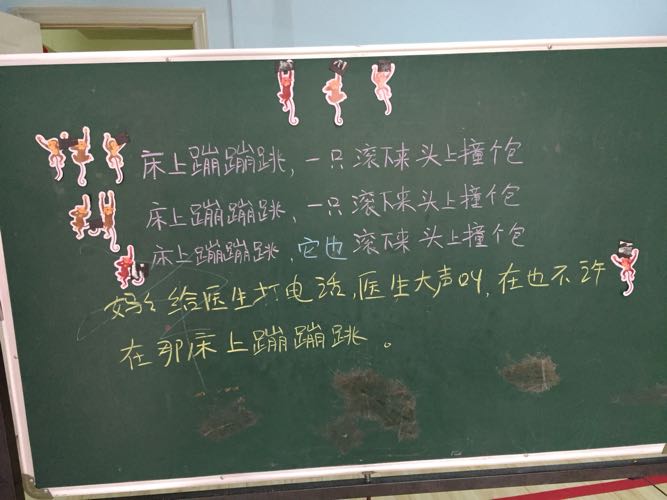 床上蹦蹦跳，一只滚下来头上撞个包
床上蹦蹦跳、一只滚下来头上撞个包
床上蹦蹦跳、它也滚下来头上撞个包
妈々给医生打电话，医生大声叫，在也不许
在那床上蹦蹦跳。